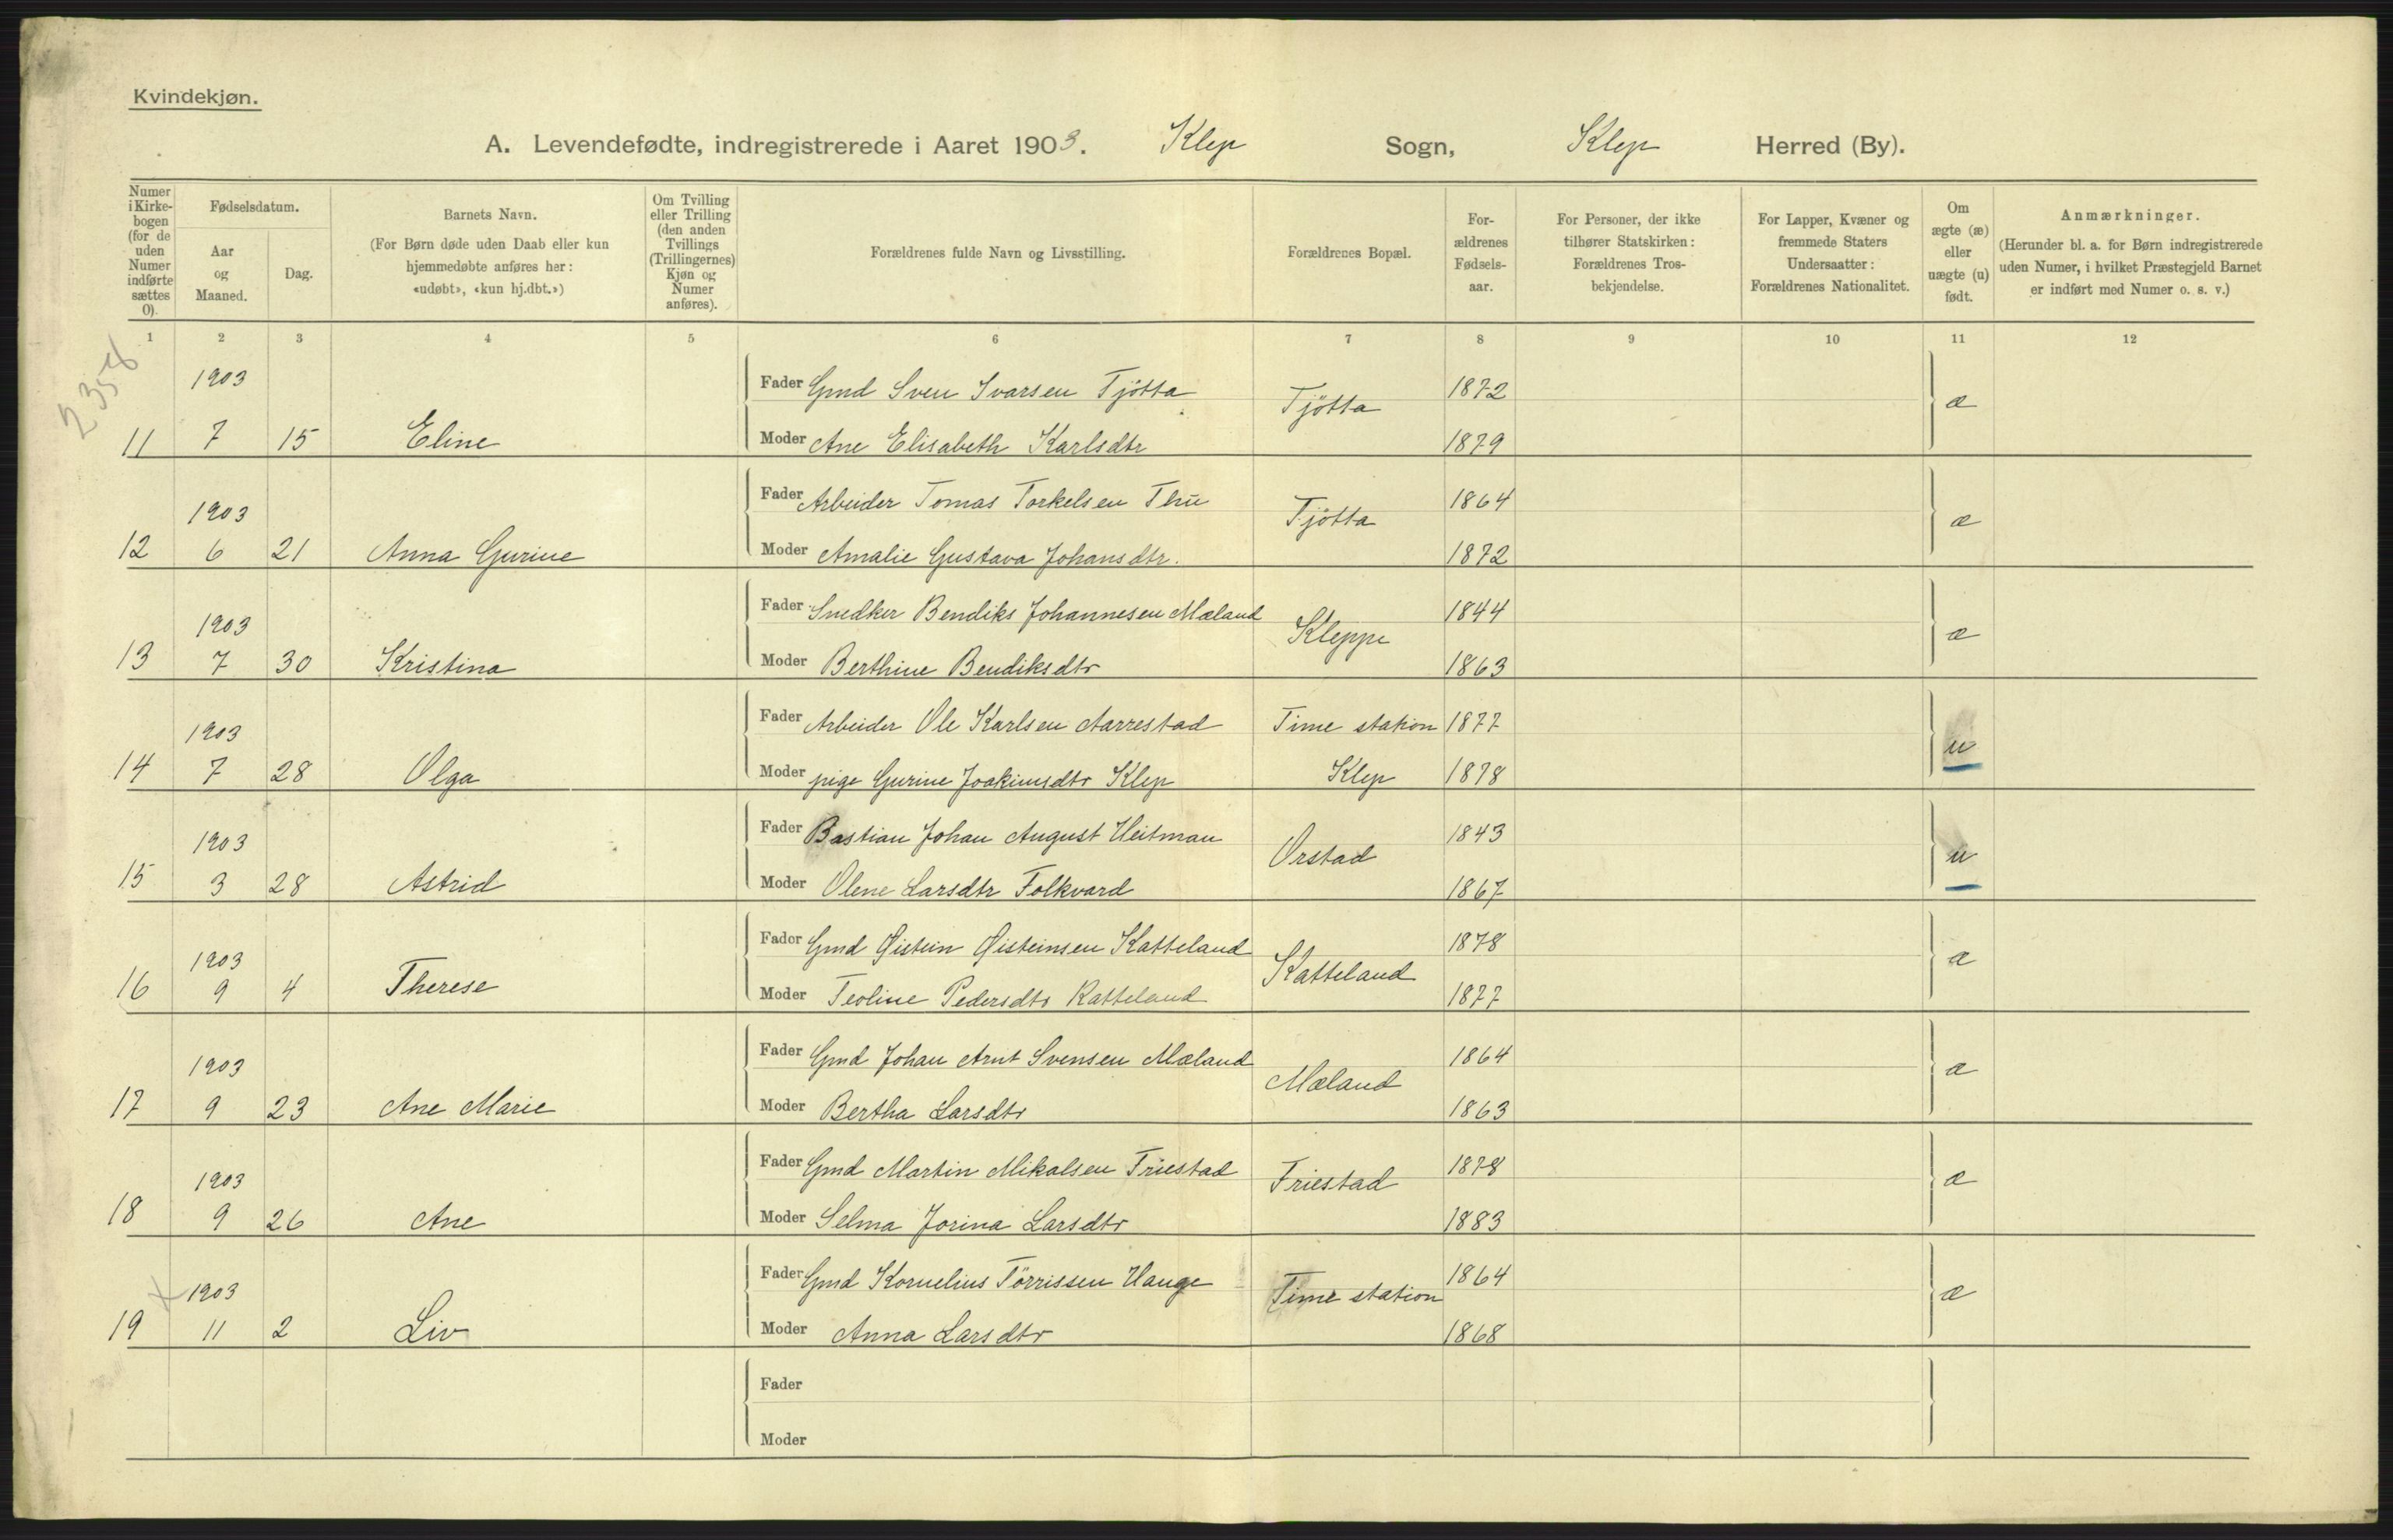 Kvindekjøn.
A. Levendefødte, indregistrerede i Aaret 1903. Klep Sogn, Klep Herred (By).
Numer i Kirke-bogen (for de uden Numer indførte sættes 0).
Fødselsdatum.
Aar og Maaned.
Dag.
Barnets Navn.
(For Børn døde uden Daab eller kun hjemmedøbte anføres her: «udøbt», «kun hj.dbt.»)
Om Tvilling eller Trilling (den anden Tvillings (Trillingernes) Kjøn og Numer anføres).
Forældrenes fulde Navn og Livsstilling.
Forældrenes Bopæl.
For-ældrenes Fødsels-aar.
For Personer, der ikke tilhører Statskirken: Forældrenes Tros-bekjendelse.
For Lapper, Kvæner og fremmede Staters Undersaatter: Forældrenes Nationalitet.
Om ægte (æ) eller uægte (u) født.
Anmærkninger.
(Herunder bl. a. for Børn indregistrerede uden Numer, i hvilket Præstegjeld Barnet er indført med Numer o. s. v.)
1 2 3 4 5 6 7 8 9 10 11 12
2358
1903 Fader Gmd Sven Ivarsen Tjøtta Tjøtta 1872 æ
11 7 15 Eline Moder Ane Elisabeth Karlsdtr 1879
1903 Fader Arbeider Tomas Torkelsen Thu Tjøtta 1864 æ
12 6 21 Anna Gurine Moder Amalie Gustava Johansdtr. 1872
1903 Fader Snedker Bendiks Johannesen Mæland Kleppe 1844 æ
13 7 30 Kristina Moder Berthine Bendiksdtr 1863
1903 Fader Arbeider Ole Karlsen Aarrestad Time station 1877 u
14 7 28 Olga Moder pige Gurine Joakimsdtr Klep Klep 1878
1903 Fader Bastian Johan August Heitman Orstad 1843 u
15 3 28 Astrid Moder Olene Larsdtr Folkvard 1867
1903 Fader Gmd Øistein Øisteinsen Katteland Katteland 1878 æ
16 9 4 Therese Moder Teoline Pedersdtr Katteland 1877
1903 Fader Gmd Johan Arnt Svensen Mæland Mæland 1864 æ
17 9 23 Ane Marie Moder Bertha Larsdtr 1863
1903 Fader Gmd Martin Mikalsen Friestad Friestad 1878 æ
18 9 26 Ane Moder Selma Jorina Larsdtr 1883
1903 Fader Gmd Kornelius Tørrissen Hauge Time station 1864 æ
19 11 2 Liv Moder Anna Larsdtr 1868
Fader
Moder